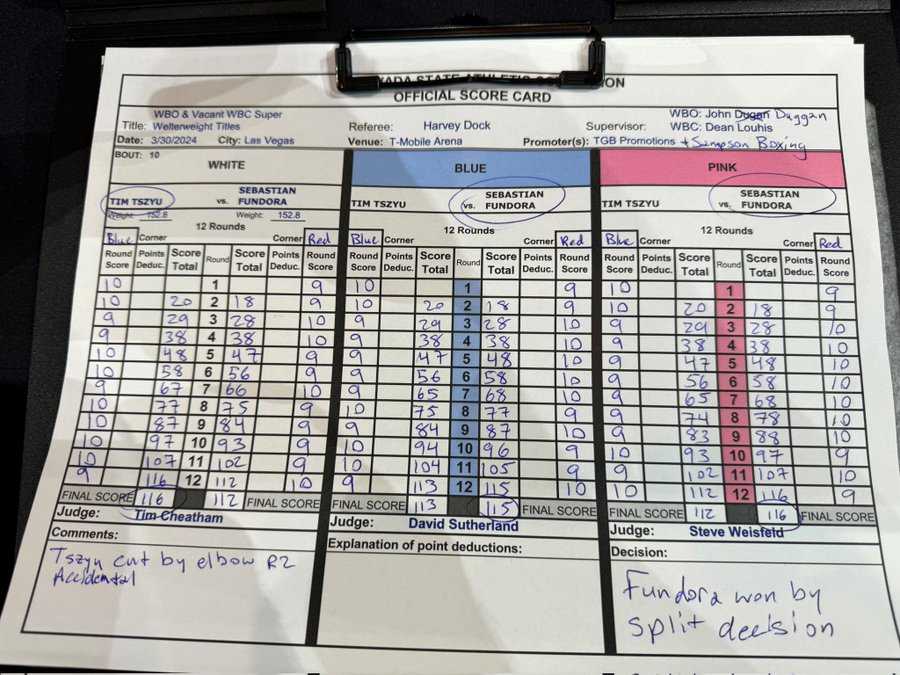 OFFICIAL SCORE CARD
WBO & Vacant WBC Super
Title: Welterweight Titles
Referee: Harvey Dock
WBO: John Dugan Duggan
Supervisor: WBC: Dean Louhis
Date: 3/30/2024 City: Las Vegas Venue: T-Mobile Arena Promoter(s): TGB Promotions + Simpson Boxing
BOUT: 10
WHITE BLUE PINK
TIM TSZYU vs. SEBASTIAN FUNDORA TIM TSZYU vs. SEBASTIAN FUNDORA TIM TSZYU vs. SEBASTIAN FUNDORA
Weight: 152.8 Weight: 152.8
12 Rounds 12 Rounds 12 Rounds
Blue Corner Corner Red Blue Corner Corner Red Blue Corner Corner Red
Round Score Points Deduc. Score Total Round Score Total Points Deduc. Round Score Round Score Points Deduc. Score Total Round Score Total Points Deduc. Round Score Round Score Points Deduc. Score Total Round Score Total Points Deduc. Round Score
10 1 9 10 1 9 10 1 9
10 20 2 18 9 10 20 2 18 9 10 20 2 18 9
9 29 3 28 10 9 29 3 28 10 9 29 3 28 10
9 38 4 38 10 9 38 4 38 10 9 38 4 38 10
10 48 5 47 9 9 47 5 48 10 9 47 5 48 10
10 58 6 56 9 9 56 6 58 10 9 56 6 58 10
9 67 7 66 10 9 65 7 68 10 9 65 7 68 10
10 77 8 75 9 10 75 8 77 9 9 74 8 78 10
10 87 9 84 9 9 84 9 87 10 9 83 9 88 10
10 97 10 93 9 10 94 10 96 9 10 93 10 97 9
10 107 11 102 9 10 104 11 105 9 9 102 11 107 10
9 116 12 112 10 9 113 12 115 10 10 112 12 116 9
FINAL SCORE 116 112 FINAL SCORE 113 115 FINAL SCORE 112 116 FINAL SCORE
Judge: Tim Cheatham Judge: David Sutherland Judge: Steve Weisfeld
Comments: Explanation of point deductions: Decision:
Tszyu cut by elbow R2
Accidental
Fundora won by
split decision